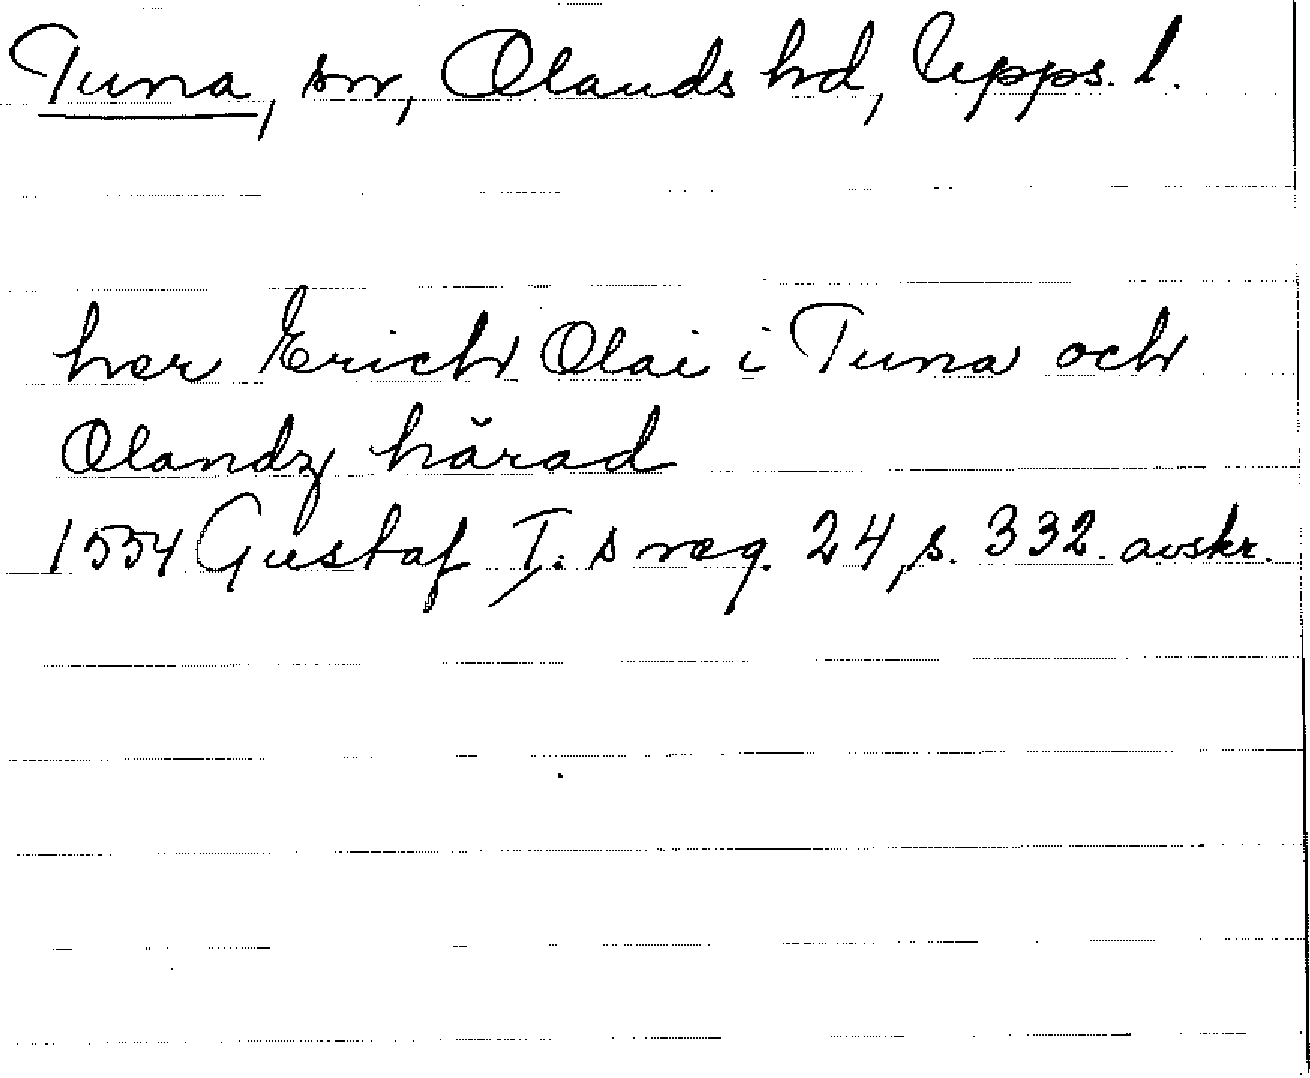 Tuna, sn, Olands hd, Upps. l.
her Erich Olai i Tuna och
Olandz härad
1554 Gustaf I:s reg. 24, s. 332. avskr.